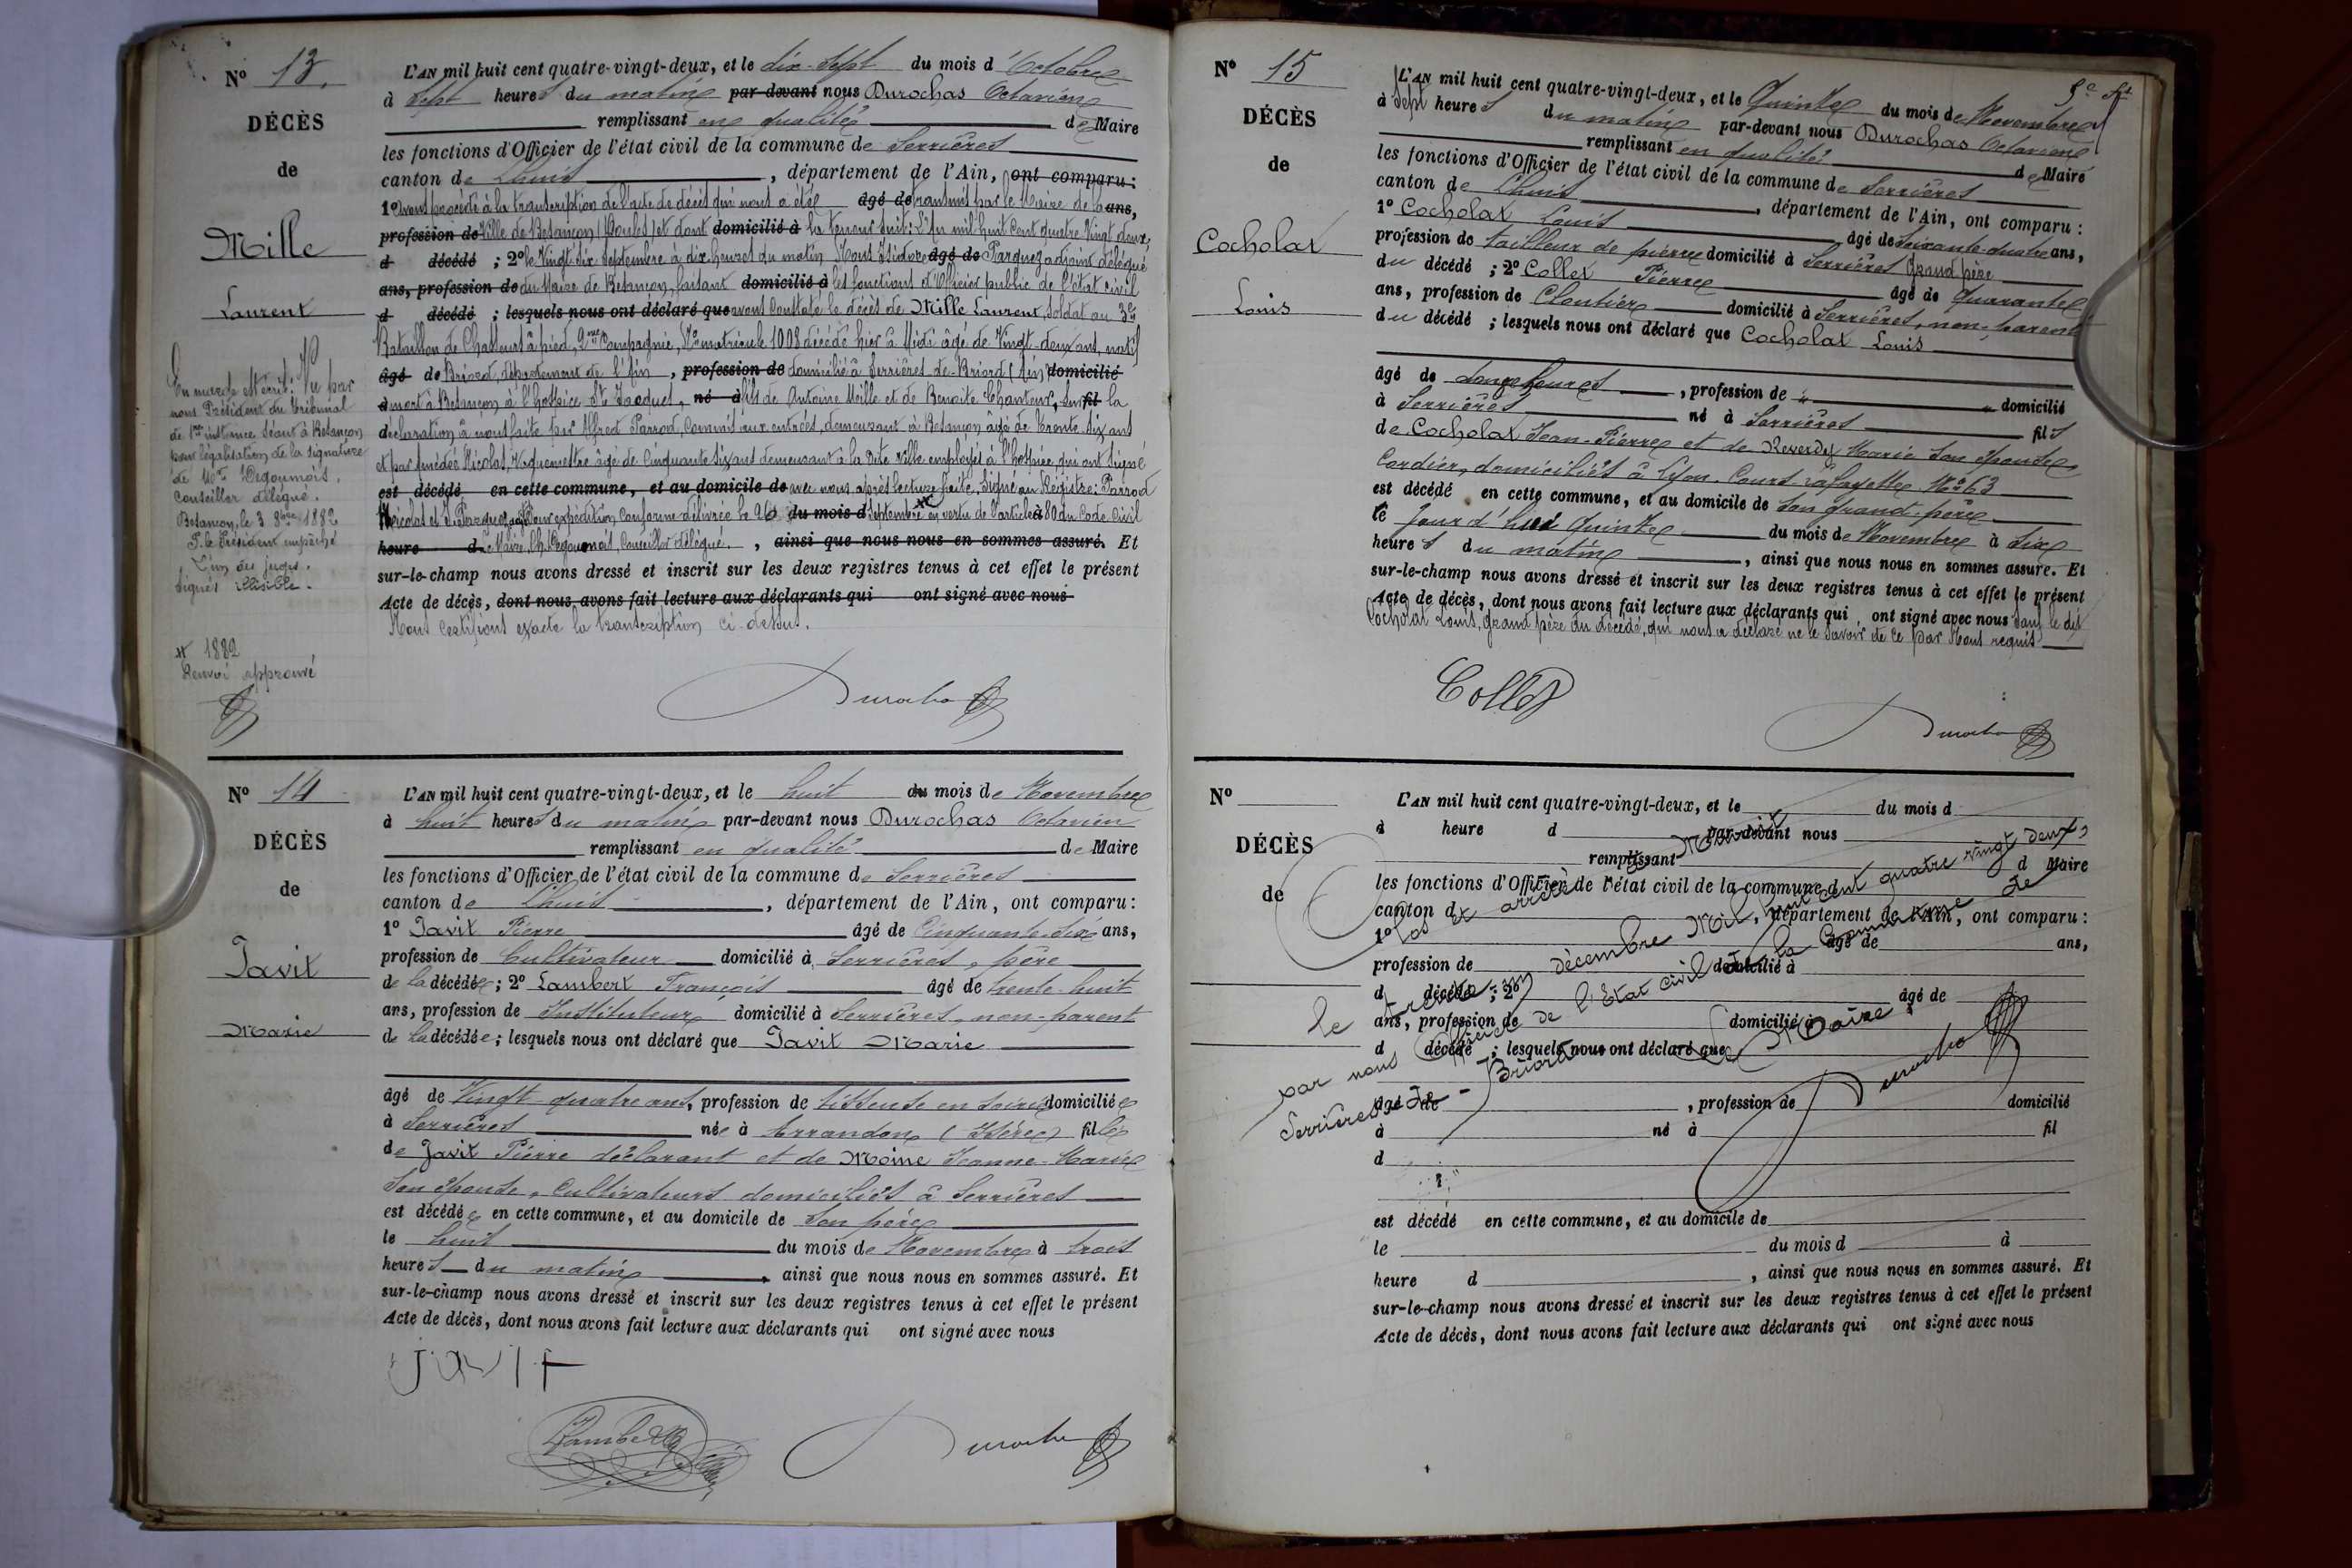 N° 13.
DÉCÈS
de
Mille
Laurent
En marge est écrit : Vu par
nous Président du Tribunal
de 1ère instance séant à Besançon
pour légalisation de la signature
de Mr Degoumois,
Conseiller délégué.
Besançon, le 3 8bre 1882
P. le Président empêché
L'un des juges.
Signé: illisible.
1882
Renvoi approuvé
L'AN mil huit cent quatre-vingt-deux, et le dix-sept du mois d'Octobre
à sept heures du matin par-devant nous Durochas Octavien
remplissant en qualité de Maire
les fonctions d'Officier de l'état civil de la commune de Serrières
canton de Lhuis, département de l'Ain, ont comparu:
1° avons procédé à la transcription de l'acte de décès qui nous a été âgé de transmis par le Maire de la ans,
profession de Ville de Besançon (Doubs) et dont domicilié à la teneur suit: L'An mil huit cent quatre-vingt deux,
d décédé ; 2° le Vingt six Septembre à dix heures du matin Nous Isidore âgé de Parguez adjoint délégué
ans, profession de du Maire de Besançon, faisant domicilié à les fonctions d'Officier public de l'état civil
d décédé ; lesquels nous ont déclaré que avons constaté le décès de Mille Laurent, Soldat au 3e
Bataillon de Chasseurs à pied, 2me Compagnie, No matricule 1008 décédé hier à Midi âgé de Vingt-deux ans, natif
âgé de Briord, département de l'Ain, profession de domicilié à Serrières-de-Briord (Ain) domicilié
à mort à Besançon à l'hospice St Jacques, né à fils de Antoine Mille et de Benoite Chanteur, Sur fil la
déclaration à nous faite par Alfred Parrod, Commis aux entrées, demeurant à Besançon âgé de trente-six ans
et par Amédée Nicolas, Vaguemestre âgé de Cinquante six ans demeurant à la dite Ville employés à l'hospice, qui ont signé
est décédé en cette commune, et au domicile de avec nous après lecture faite. Signé au Registre: Parrod
Nicolas et I. Parguez adjt Pour expédition conforme délivrée le 26 du mois d Septembre en vertu de l'article à 80 du Code Civil
heure d Le Maire, Ch. Degoumois, Conseiller délégué, ainsi que nous nous en sommes assuré. Et
sur-le-champ nous avons dressé et inscrit sur les deux registres tenus à cet effet le présent
Acte de décès, dont nous avons fait lecture aux déclarants qui ont signé avec nous
Nous Certifions exacte la transcription ci-dessus.
Durochas
N° 14
DÉCÈS
de
Javit
Marie
L'AN mil huit cent quatre-vingt-deux, et le huit du mois de Novembre
à huit heures du matin par-devant nous Durochas Octavien
remplissant en qualité de Maire
les fonctions d'Officier de l'état civil de la commune de Serrières
canton de Lhuis, département de l'Ain, ont comparu:
1° Javit Pierre âgé de Cinquante-six ans,
profession de Cultivateur domicilié à Serrières, père
de la décédée; 2° Lambert François âgé de trente-huit
ans, profession de Instituteur domicilié à Serrières, non-parent
de la décédée; lesquels nous ont déclaré que Javit Marie
âgé de Vingt-quatre ans, profession de tisseuse en soie domiciliée
à Serrières née à Arrandon (Isère) fille
de Javit Pierre déclarant et de Moine Jeanne-Marie
son épouse, Cultivateurs domiciliés à Serrières
est décédée en cette commune, et au domicile de son père
le huit du mois de Novembre à trois
heures du matin, ainsi que nous nous en sommes assuré. Et
sur-le-champ nous avons dressé et inscrit sur les deux registres tenus à cet effet le présent
Acte de décès, dont nous avons fait lecture aux déclarants qui ont signé avec nous
Javit
Lambert
Durochas
N° 15
DÉCÈS
de
Cocholat
Louis
L'AN mil huit cent quatre-vingt-deux, et le Quinze du mois de Novembre
à Sept heures du matin par-devant nous Durochas Octavien
remplissant en qualité de Maire
les fonctions d'Officier de l'état civil de la commune de Serrières
canton de Lhuis, département de l'Ain, ont comparu:
1° Cocholat Louis âgé de Soixante-quatre ans,
profession de tailleur de pierre domicilié à Serrières Grand père
du décédé ; 2° Collet Pierre âgé de Quarante
ans, profession de Cloutier domicilié à Serrières, non-parent
du décédé ; lesquels nous ont déclaré que Cocholat Louis
âgé de douze heures, profession de " " domicilié
à Serrières né à Serrières fils
de Cocholat Jean-Pierre et de Reverdy Marie son épouse
Cordier, domiciliés à Lyon. Cours Lafayette No 63
est décédé en cette commune, et au domicile de son grand-père
le Jour d'hui Quinze du mois de Novembre à six
heures du matin, ainsi que nous nous en sommes assuré. Et
sur-le-champ nous avons dressé et inscrit sur les deux registres tenus à cet effet le présent
Acte de décès, dont nous avons fait lecture aux déclarants qui ont signé avec nous sauf le dit
Cocholat Louis, Grand père du décédé, qui nous a déclaré ne le savoir de ce par Nous requis
Collet
Durochas
N°
DÉCÈS
de
L'AN mil huit cent quatre-vingt-deux, et le du mois d
à heure d par-devant nous
remplissant d Maire
les fonctions d'Officier de l'état civil de la commune d
canton d , département de l'Ain, ont comparu:
1° âgé de ans,
profession de domicilié à
d décédé ; 2° âgé de
ans, profession de domicilié à
d décédé ; lesquels nous ont déclaré que
âgé de , profession de domicilié
à né à fil
d
est décédé en cette commune, et au domicile de
le du mois d à
heure d , ainsi que nous nous en sommes assuré. Et
sur-le-champ nous avons dressé et inscrit sur les deux registres tenus à cet effet le présent
Acte de décès, dont nous avons fait lecture aux déclarants qui ont signé avec nous
Clos et arrêté à Minuit
le trente-un décembre Mil huit cent quatre vingt deux,
par nous Officier de l'Etat civil de la Commune de
Serrières-de-Briord
Le Maire,
Durochas